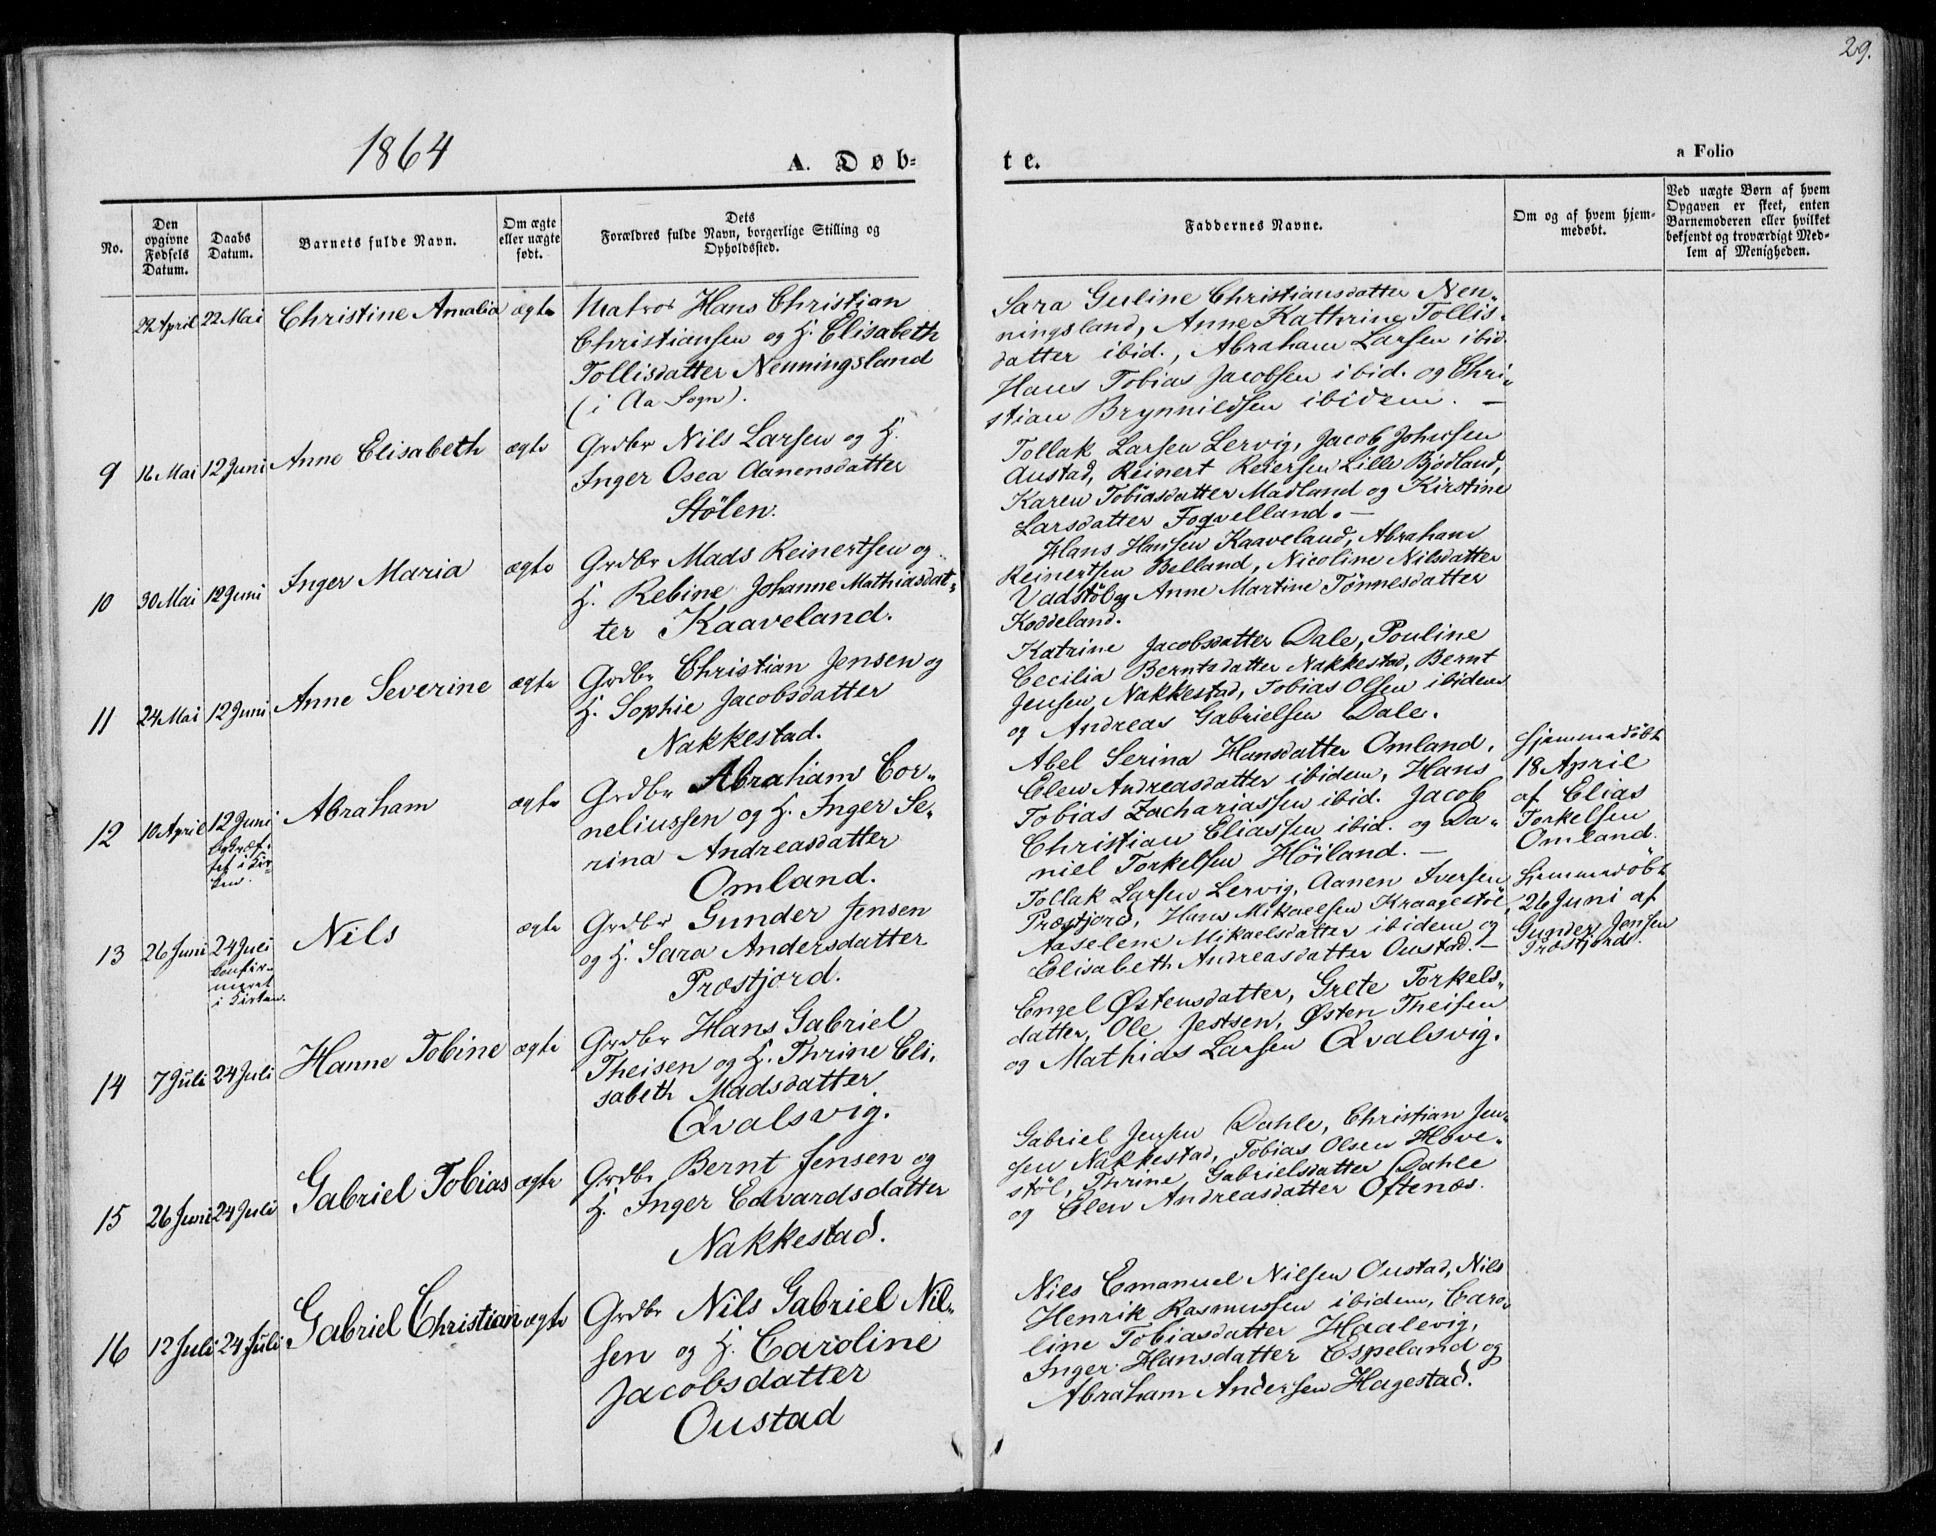 29.
1864
A. Døb-
te.
a Folio
No.
Den
opgivne
Fødsels
Datum.
Daabs
Datum.
Barnets fulde Navn.
Om ægte
eller uægte
født.
Dets
Forældres fulde Navn, borgerlige Stilling og
Opholdssted.
Faddernes Navne.
Om og af hvem hjem-
medøbt.
Ved uægte Børn af hvem
Opgaven er skeet, enten
Barnemoderen eller hvilket
bekjendt og troværdigt Med-
lem af Menigheden.
22 April 22 Mai Christine Amalia ægte
Matros Hans Christian
Christiansen og H. Elisabeth
Tollisdatter Nenningsland
(i Aa Sogn).
Sara Guline Christiansdatter Nen-
ningsland, Anne Kathrine Tollis-
datter ibid., Abraham Larsen ibid.
Hans Tobias Jacobsen ibid. og Chri-
stian Brynnildsen ibidem. —
9 16 Mai 12 Juni Anne Elisabeth ægte
Grdbr Nils Larsen og H.
Inger Osea Aanensdatter
Stölen.
Tollak Larsen Lervig, Jacob Johnsen
Austad, Reinert Reiersen Lille Bjödland,
Karen Tobiasdatter Madland og Kirstine
Larsdatter Foqvelland. —
10 30 Mai 12 Juni Inger Maria ægte
Grdbr Mads Reinertsen og
H. Rebine Johanne Mathiasdat-
ter Kaaveland.
Hans Hansen Kaaveland, Abraham
Reinertsen Belland, Nicoline Nilsdatter
Vadstöl og Anne Martine Tönnesdatter
Koddeland.
11 24 Mai 12 Juni Anne Severine ægte
Grdbr Christian Jensen og
H. Sophie Jacobsdatter
Nakkestad.
Katrine Jacobsdatter Dale, Pouline
Cecilia Berntsdatter Nakkestad, Bernt
Jensen Nakkestad, Tobias Olsen ibidem
og Andreas Gabrielsen Dale.
12 10 April 12 Juni
bekræf-
tet i Kir-
ken.
Abraham ægte
Grdbr Abraham Cor-
neliussen og H. Inger Se-
rina Andreasdatter
Omland.
Abel Serina Hansdatter Omland,
Elen Andreasdatter ibidem, Hans
Tobias Zachariassen ibid. Jacob
Christian Eliassen ibid. og Da-
niel Torkelsen Höiland. —
Hjemmedöbt
18 April
af Elias
Torkelsen
Omland.
13 26 Juni 24 Juli
confir-
meret
i Kirken.
Nils ægte
Grdbr Gunder Jensen
og H. Sara Andersdatter
Præstjord.
Tollak Larsen Lervig, Aanen Iversen
Præstjord, Hans Mikaelsen Kraagestöl,
Aaselene Mikaelsdatter ibidem og
Elisabeth Andreasdatter Oustad. —
Hjemmedöbt
26 Juni af
Gunder Jensen
Præstjord.
14 7 Juli 24 Juli Hanne Tobine ægte
Grdbr Hans Gabriel
Theisen og H. Thrine Eli-
sabeth Madsdatter
Qvalsvig.
Engel Østensdatter, Grete Torkels-
datter, Ole Jestsen, Østen Theisen
og Mathias Larsen Qvalsvig.
15 26 Juni 24 Juli Gabriel Tobias ægte
Grdbr Bernt Jensen og
H. Inger Edvardsdatter
Nakkestad.
Gabriel Jensen Dahle, Christian Jen-
sen Nakkestad, Tobias Olsen Höve-
stöl, Thrine Gabrielsdatter Dahle
og Elen Andreasdatter Oftenæs.
16 12 Juli 24 Juli Gabriel Christian ægte
Grdbr Nils Gabriel Nil-
sen og H. Caroline
Jacobsdatter
Oustad
Nils Emanuel Nilsen Oustad, Nils
Henrik Rasmussen ibidem, Caro-
line Tobiasdatter Haalevig,
Inger Hansdatter Espeland og
Abraham Andersen Hagestad.